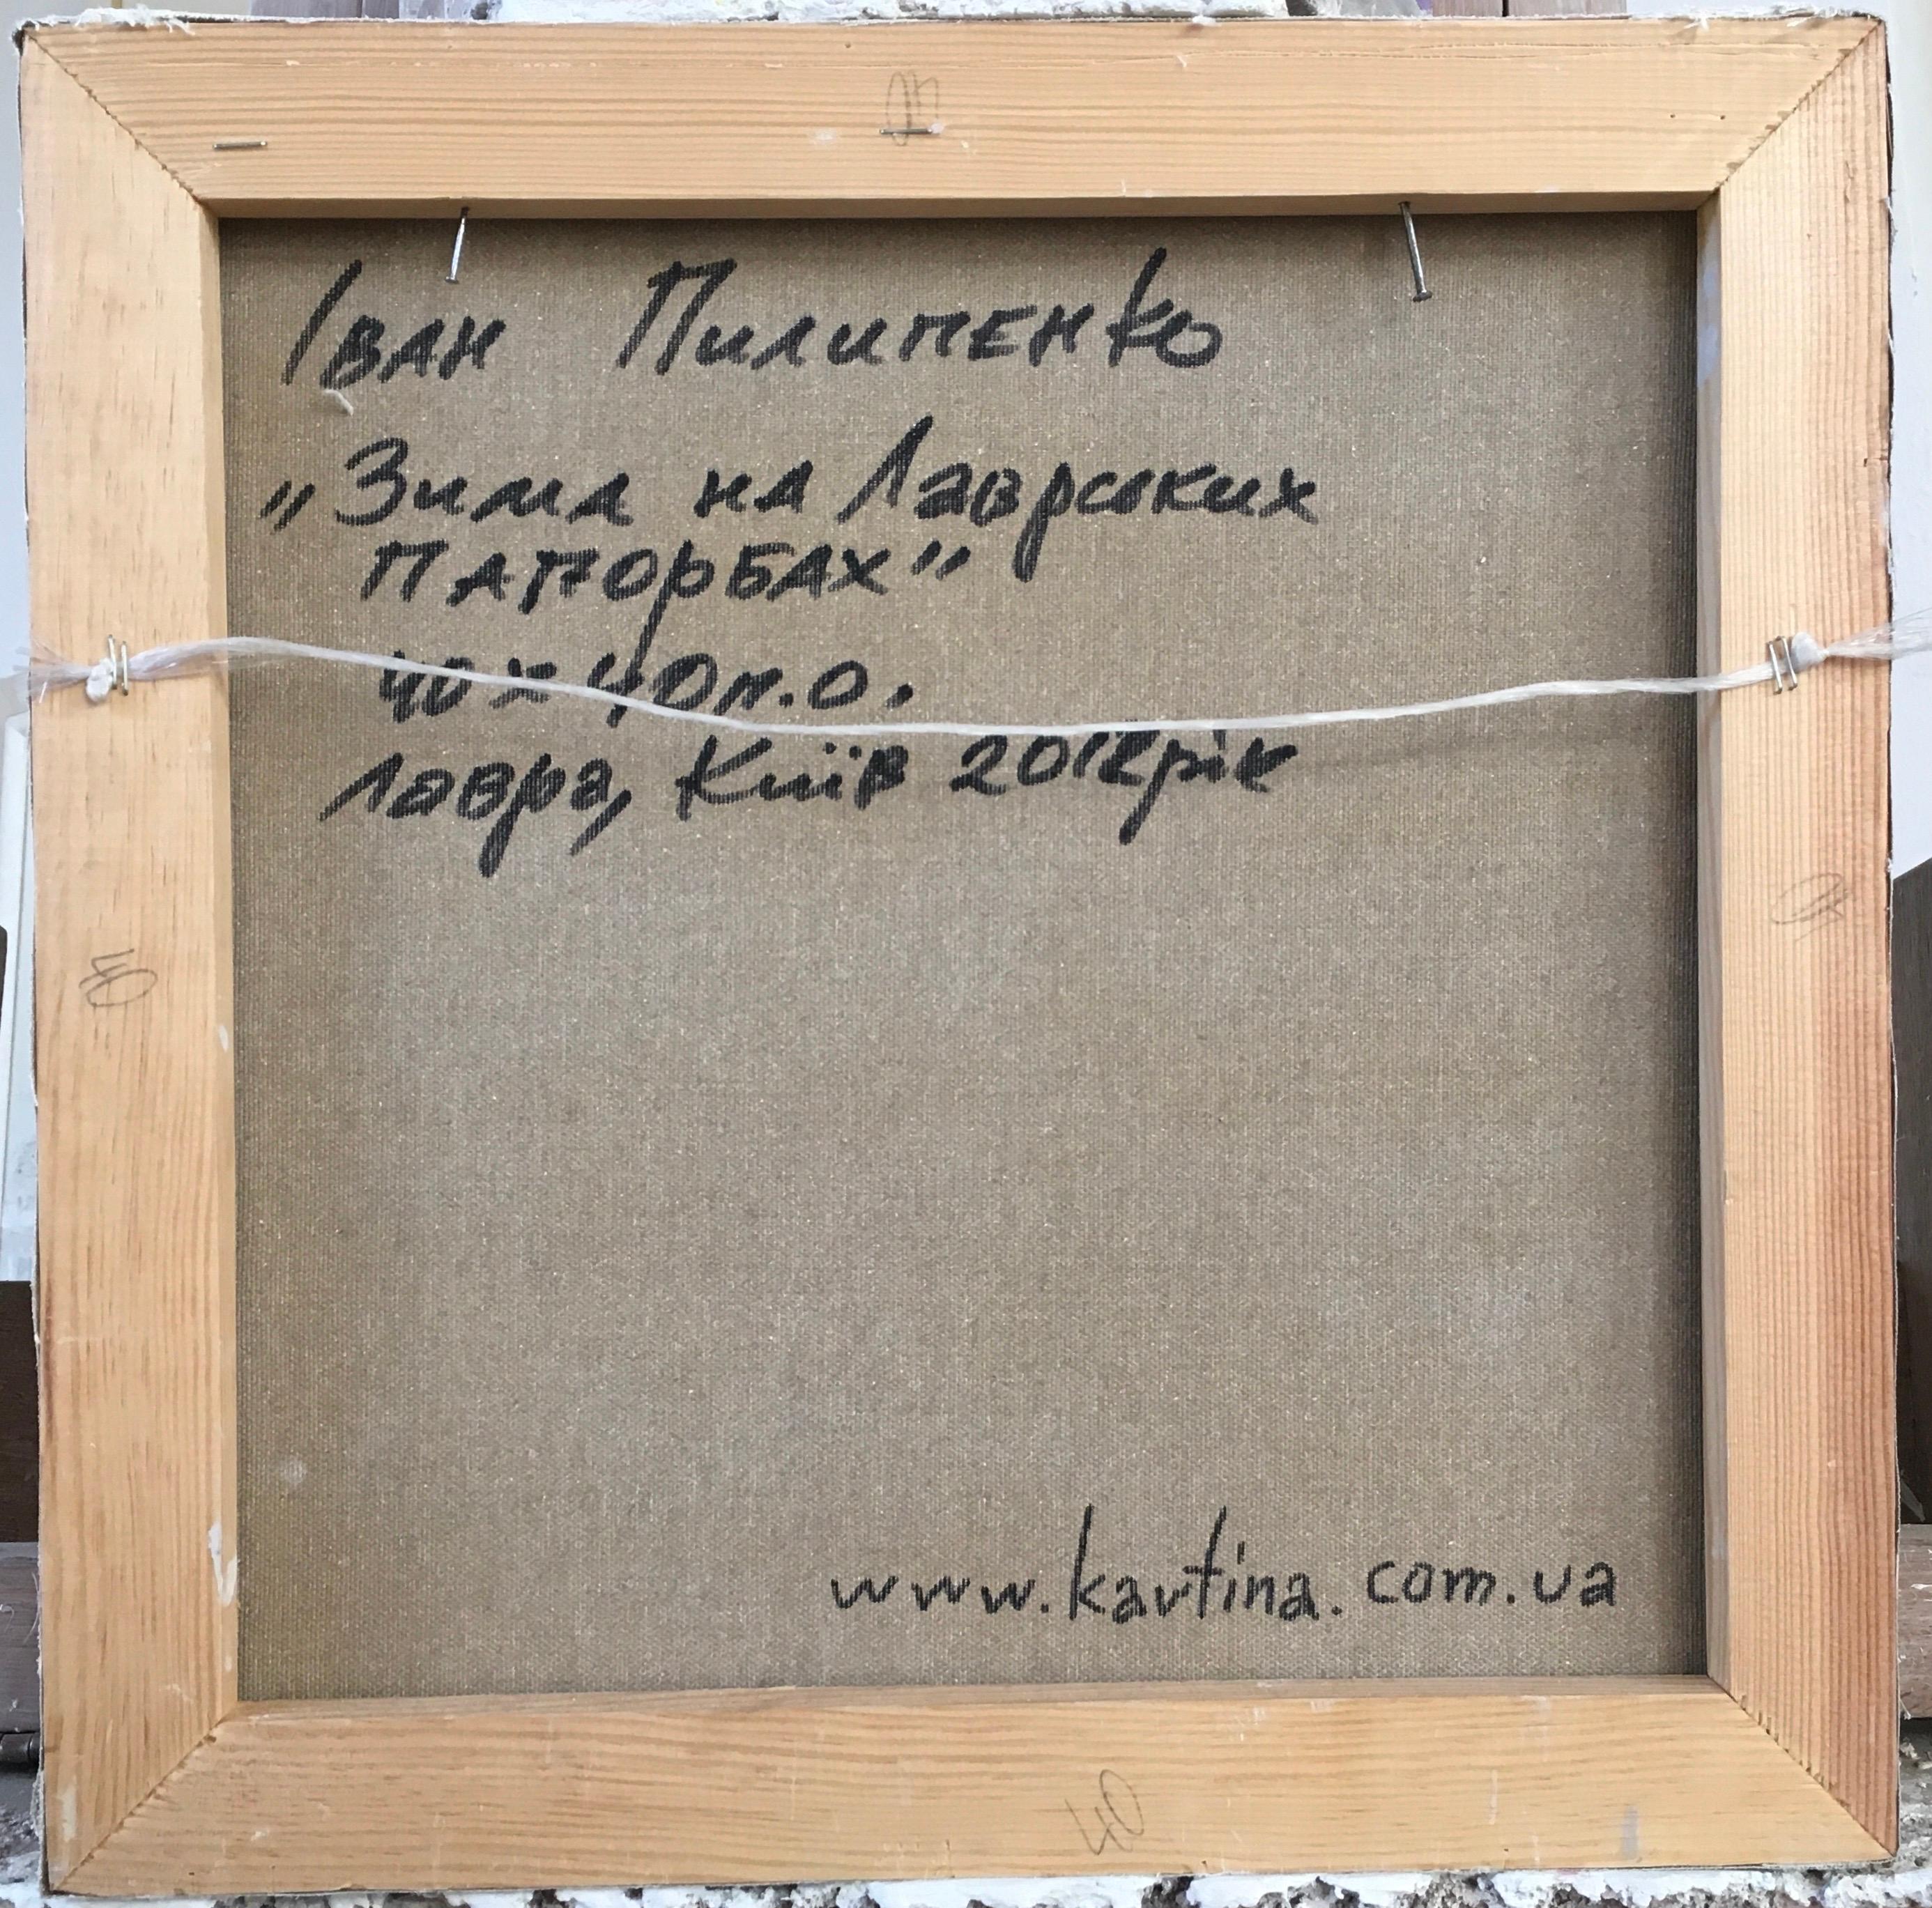 Іван Пилипенко
„Зима на Лаврських
пагорбах"
40 х 40 п.о.
Лавра, Київ 2012 рік
www.kartina.com.ua
40
40
40
40